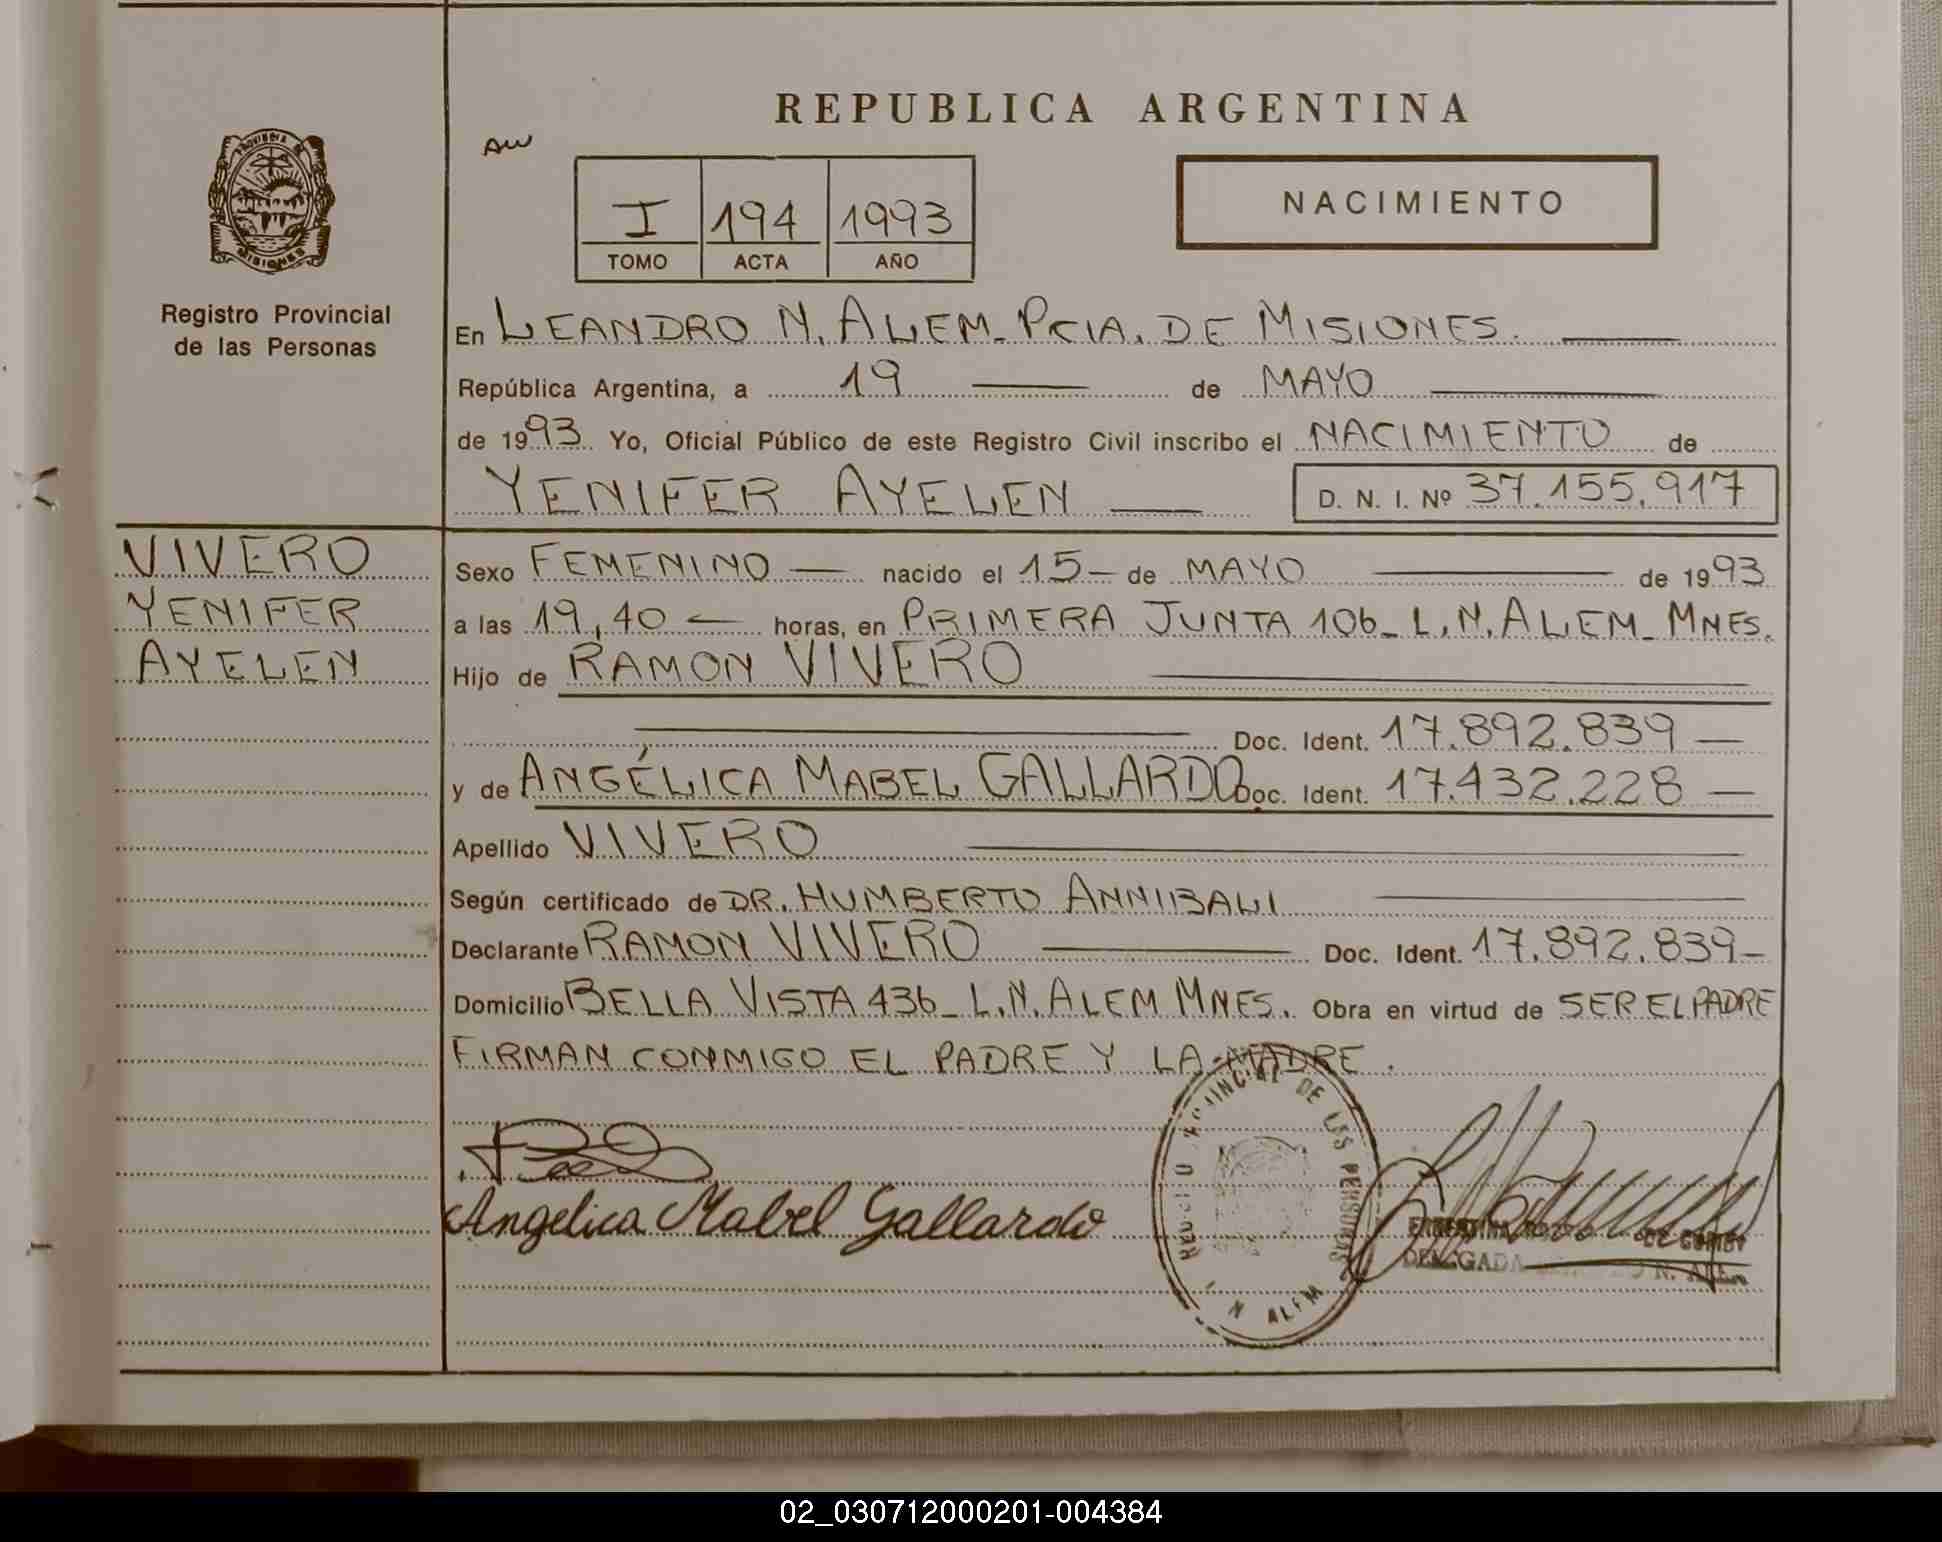 REPUBLICA ARGENTINA
PROVINCIA DE
MISIONES
Registro Provincial
de las Personas
I 194 1993
TOMO ACTA AÑO
NACIMIENTO
En LEANDRO N. ALEM - PCIA. DE MISIONES.
República Argentina, a 19 de MAYO
de 1993 Yo, Oficial Público de este Registro Civil inscribo el NACIMIENTO de
YENIFER AYELEN D. N. I. Nº 37.155.917
VIVERO
YENIFER
AYELEN
Sexo FEMENINO — nacido el 15 — de MAYO de 1993
a las 19,40 — horas, en PRIMERA JUNTA 106 - L.N. ALEM - MNES.
Hijo de RAMON VIVERO
Doc. Ident. 17.892.839 —
y de ANGÉLICA MABEL GALLARDO Doc. Ident. 17.432.228 —
Apellido VIVERO
Según certificado de DR. HUMBERTO ANNIBALI
Declarante RAMON VIVERO Doc. Ident. 17.892.839 —
Domicilio BELLA VISTA 436 - L.N. ALEM MNES. Obra en virtud de SER EL PADRE
FIRMAN CONMIGO EL PADRE Y LA MADRE.
Angelica Mabel Gallardo
REGISTRO PROVINCIAL DE LAS PERSONAS
L N ALEM
DELEGADA
02_030712000201-004384